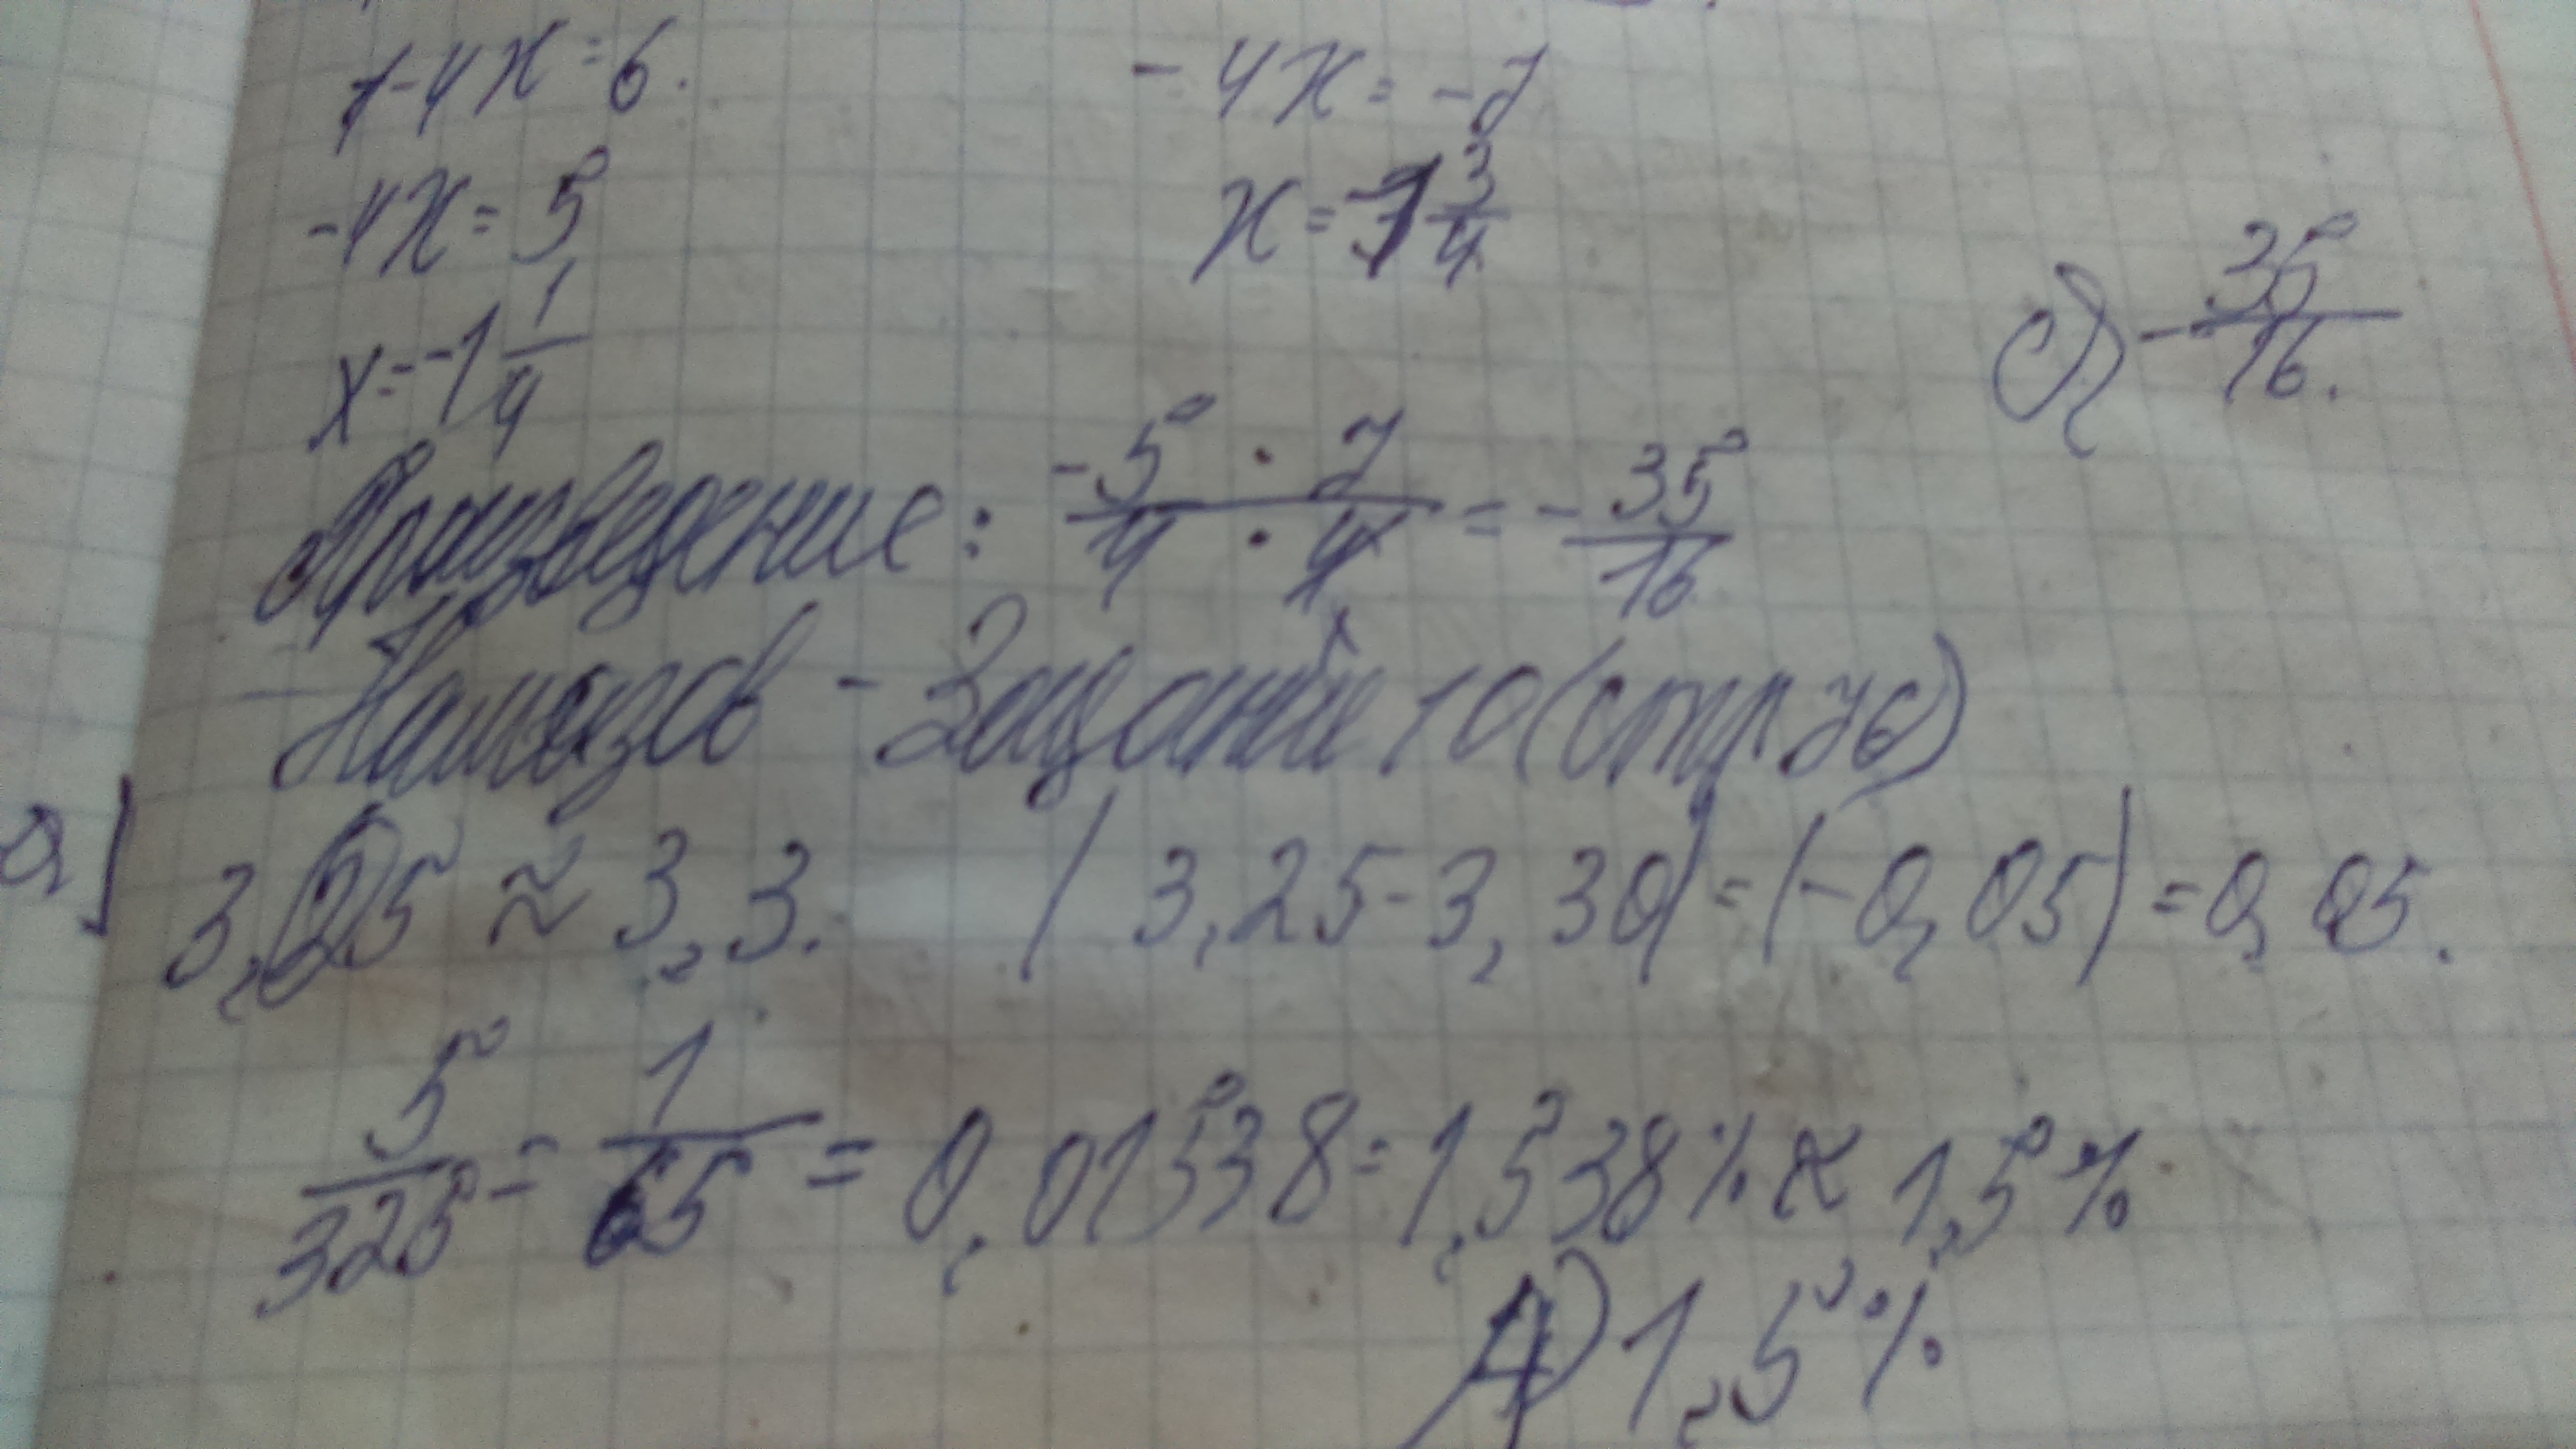 1-4x=6.
-4x=-7
-4x=5
x=1 3/4
x=-1 1/4
-35/16.
Произведение: (-5·7)/(4·4)=-35/16
Намазов - Задание 10 (стр 76)
а) 3,25≈3,3. |3,25-3,30|=|-0,05|=0,05.
5/325=1/65=0,01538=1,538%≈1,5%
А) 1,5%